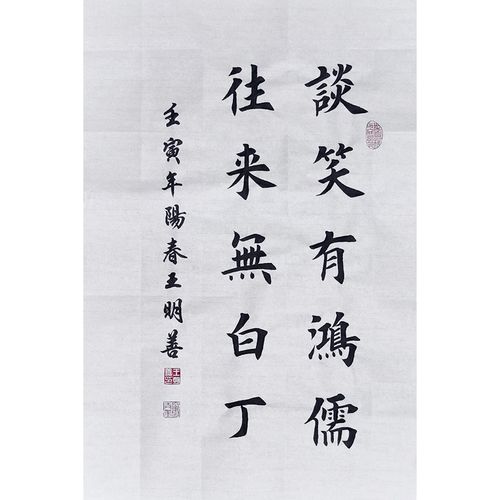 談笑有鴻儒
往来無白丁
壬寅年陽春王明善